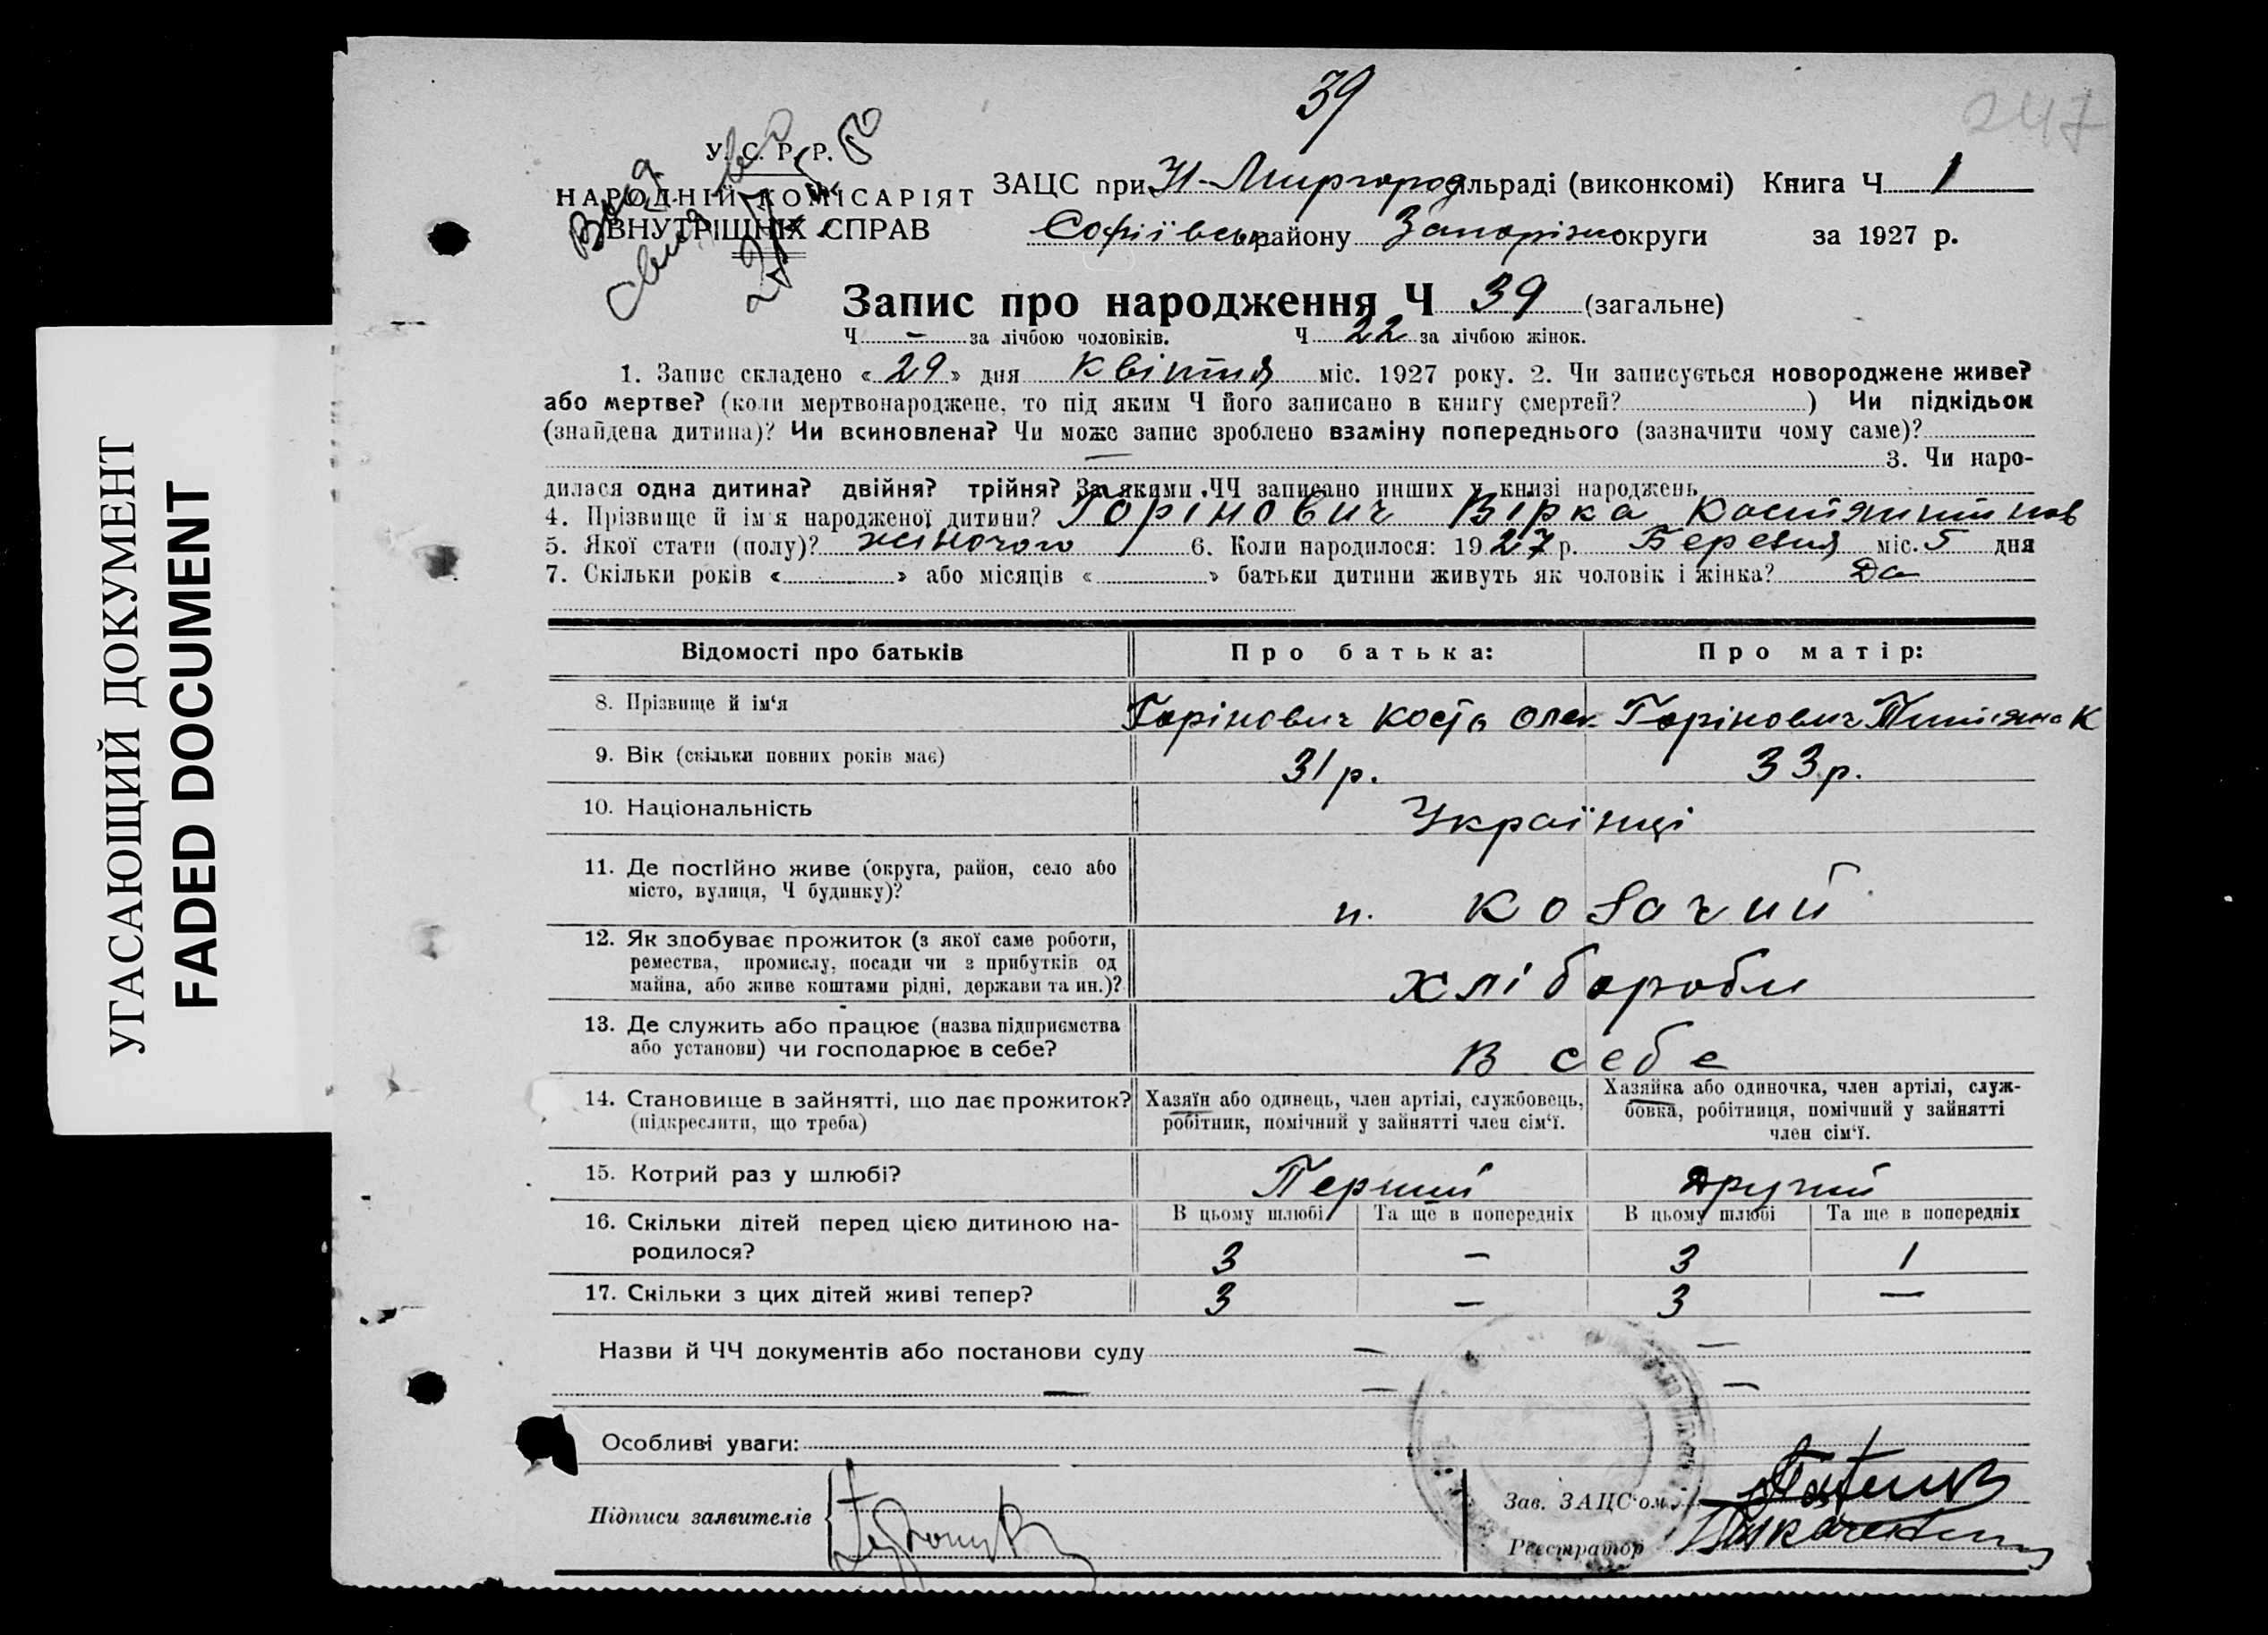 УГАСАЮЩИЙ ДОКУМЕНТ
FADED DOCUMENT
39
247
У. С. Р. Р.
НАРОДНІЙ КОМІСАРІЯТ
ВНУТРІШНІХ СПРАВ
ЗАЦС при Н-Миргород сільраді (виконкомі) Книга Ч. 1
Софіївськ району Запорізьк округи за 1927 р.
Запис про народження Ч 39 (загальне)
Ч. – за лічбою чоловіків. Ч 22 за лічбою жінок.
1. Запис складено «29» дня Квітня міс. 1927 року. 2. Чи записується новороджене живе?
або мертве? (коли мертвонароджене, то під яким Ч його записано в книгу смертей? ) Чи підкідьок
(знайдена дитина)? Чи всиновлена? Чи може запис зроблено взаміну попереднього (зазначити чому саме)?
— 3. Чи наро-
дилася одна дитина? двійня? трійня? За якими ЧЧ записано инших у книзі народжень
4. Прізвище й ім'я народженої дитини? Горінович Вірка Костянтинов
5. Якої стати (полу)? жіночого 6. Коли народилося: 1927 р. Березня міс. 5 дня
7. Скільки років « » або місяців « » батьки дитини живуть як чоловік і жінка? Да
Відомості про батьків Про батька: Про матір:
8. Прізвище й ім'я Горінович Кость Олек. Горінович Тетіяна К
9. Вік (скільки повних років має) 31 р. 33 р.
10. Національність Українці
11. Де постійно живе (округа, район, село або
місто, вулиця, Ч будинку)? п. Козачий
12. Як здобуває прожиток (з якої саме роботи,
ремества, промислу, посади чи з прибутків од
майна, або живе коштами рідні, держави та ин.)? Хлібороби
13. Де служить або працює (назва підприємства
або установи) чи господарює в себе? В себе
14. Становище в зайнятті, що дає прожиток?
(підкреслити, що треба)
Хазяїн або одинець, член артілі, службовець,
робітник, помічний у зайнятті член сім'ї.
Хазяйка або одиночка, член артілі, служ-
бовка, робітниця, помічний у зайнятті
член сім'ї.
15. Котрий раз у шлюбі? Перший Другий
16. Скільки дітей перед цією дитиною на-
родилося?
В цьому шлюбі Та ще в попередніх В цьому шлюбі Та ще в попередніх
3 – 3 1
17. Скільки з цих дітей живі тепер? 3 – 3 —
Назви й ЧЧ документів або постанови суду – –
— – –
Особливі уваги:
Підписи заявителів
Зав. ЗАЦС'ом
Реєстратор